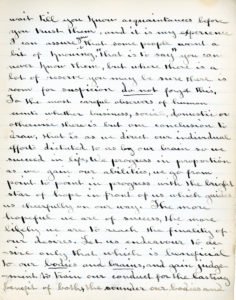 wait till you know acquaintances before
you trust them, and it is my experience
I can assure that some people want a
lot of knowing, that is to say you can
never know them, but where there is a
lot of reserve you may be sure there is
room for suspicion do not forget this,
To the most careful observers of human
units whether business, social, domestic or
otherwise there is but one conclusion to
draw, that is as we direct our individual
efforts dictated to us by our brain so we
succeed in life, We progress in proportion
as we gain our abilities, we go from
point to point in progress with the bright
star of hope in front of us which guides
us cheerfully on our way. The more
hopeful we are of success, the more
likely we are to reach the finality of
our desires. Let us endeavour to de-
sire only that which is beneficial
to our bodies and brains, and gain judge-
ment to train our conduct for the lasting
benefit of both, the sounder our bodies and